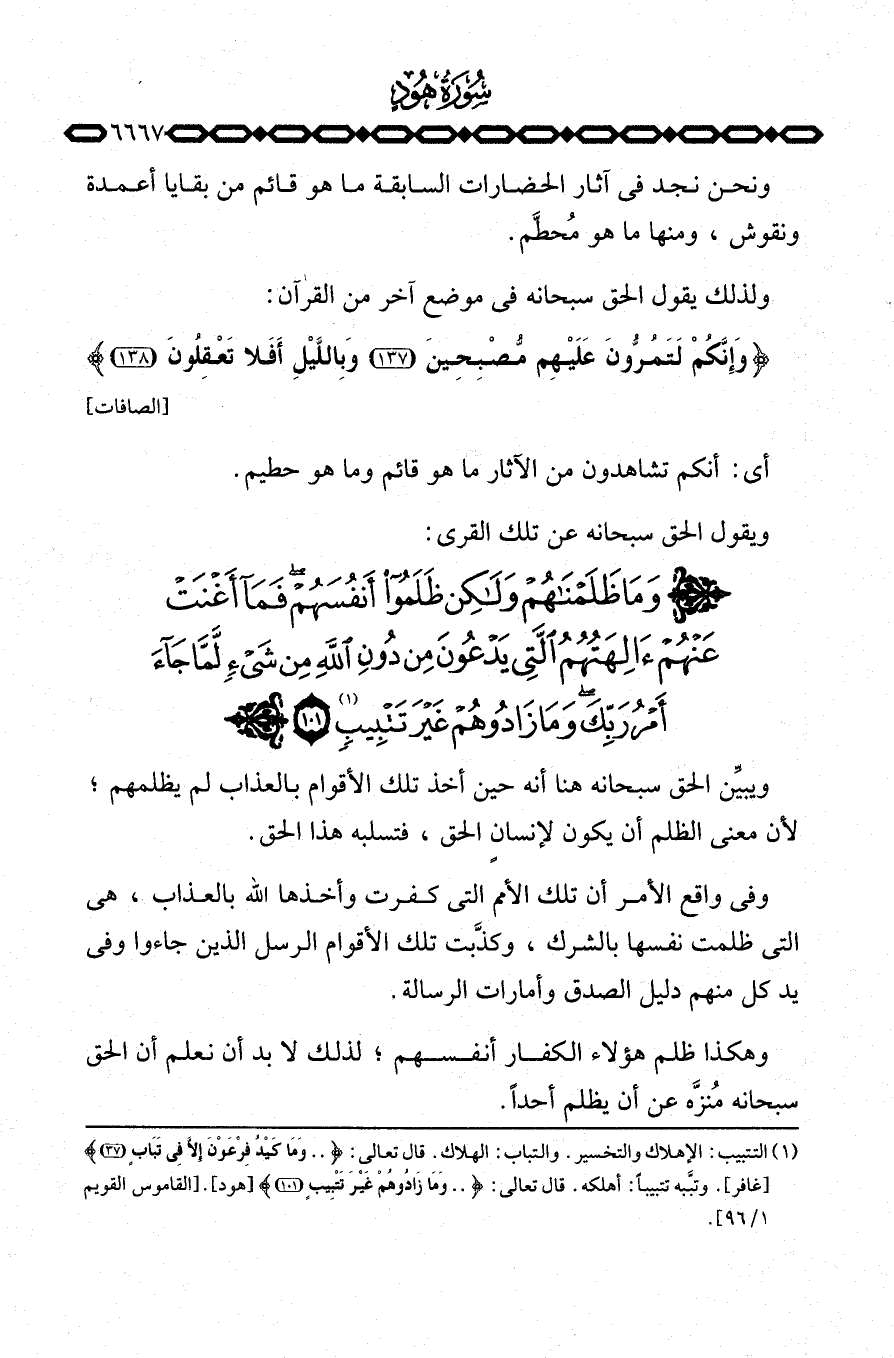 سُورَةُ هُودٍ
٦٦٦٧
ونحن نجد فى آثار الحضارات السابقة ما هو قائم من بقايا أعمدة
ونقوش ، ومنها ما هو مُحطَّم.
ولذلك يقول الحق سبحانه فى موضع آخر من القرآن:
﴿وَإِنَّكُمْ لَتَمُرُّونَ عَلَيْهِم مُّصْبِحِينَ (١٣٧) وَبِاللَّيْلِ أَفَلا تَعْقِلُونَ (١٣٨)﴾
[الصافات]
أى: أنكم تشاهدون من الآثار ما هو قائم وما هو حطيم.
ويقول الحق سبحانه عن تلك القرى:
﴿وَمَا ظَلَمْنَٰهُمْ وَلَٰكِن ظَلَمُوٓا۟ أَنفُسَهُمْ ۖ فَمَآ أَغْنَتْ
عَنْهُمْ ءَالِهَتُهُمُ ٱلَّتِى يَدْعُونَ مِن دُونِ ٱللَّهِ مِن شَىْءٍ لَّمَّا جَآءَ
أَمْرُ رَبِّكَ ۖ وَمَا زَادُوهُمْ غَيْرَ تَتْبِيبٍ (١) (١٠١)﴾
ويبيِّن الحق سبحانه هنا أنه حين أخذ تلك الأقوام بالعذاب لم يظلمهم ؛
لأن معنى الظلم أن يكون لإنسانٍ الحق ، فتسلبه هذا الحق.
وفى واقع الأمر أن تلك الأمم التى كفرت وأخذها الله بالعذاب ، هى
التى ظلمت نفسها بالشرك ، وكذَّبت تلك الأقوام الرسل الذين جاءوا وفى
يد كل منهم دليل الصدق وأمارات الرسالة.
وهكذا ظلم هؤلاء الكفار أنفسهم ؛ لذلك لا بد أن نعلم أن الحق
سبحانه مُنزَّه عن أن يظلم أحداً.
(١) التتبيب: الإهلاك والتخسير. والتباب: الهلاك. قال تعالى: ﴿ .. وَمَا كَيْدُ فِرْعَوْنَ إِلاَّ فِى تَبَابٍ (٣٧)﴾
[غافر]. وتبَّبه تتبيباً: أهلكه. قال تعالى: ﴿ .. وَمَا زَادُوهُمْ غَيْرَ تَتْبِيبٍ (١٠١)﴾ [هود]. [القاموس القويم
٩٦/١].